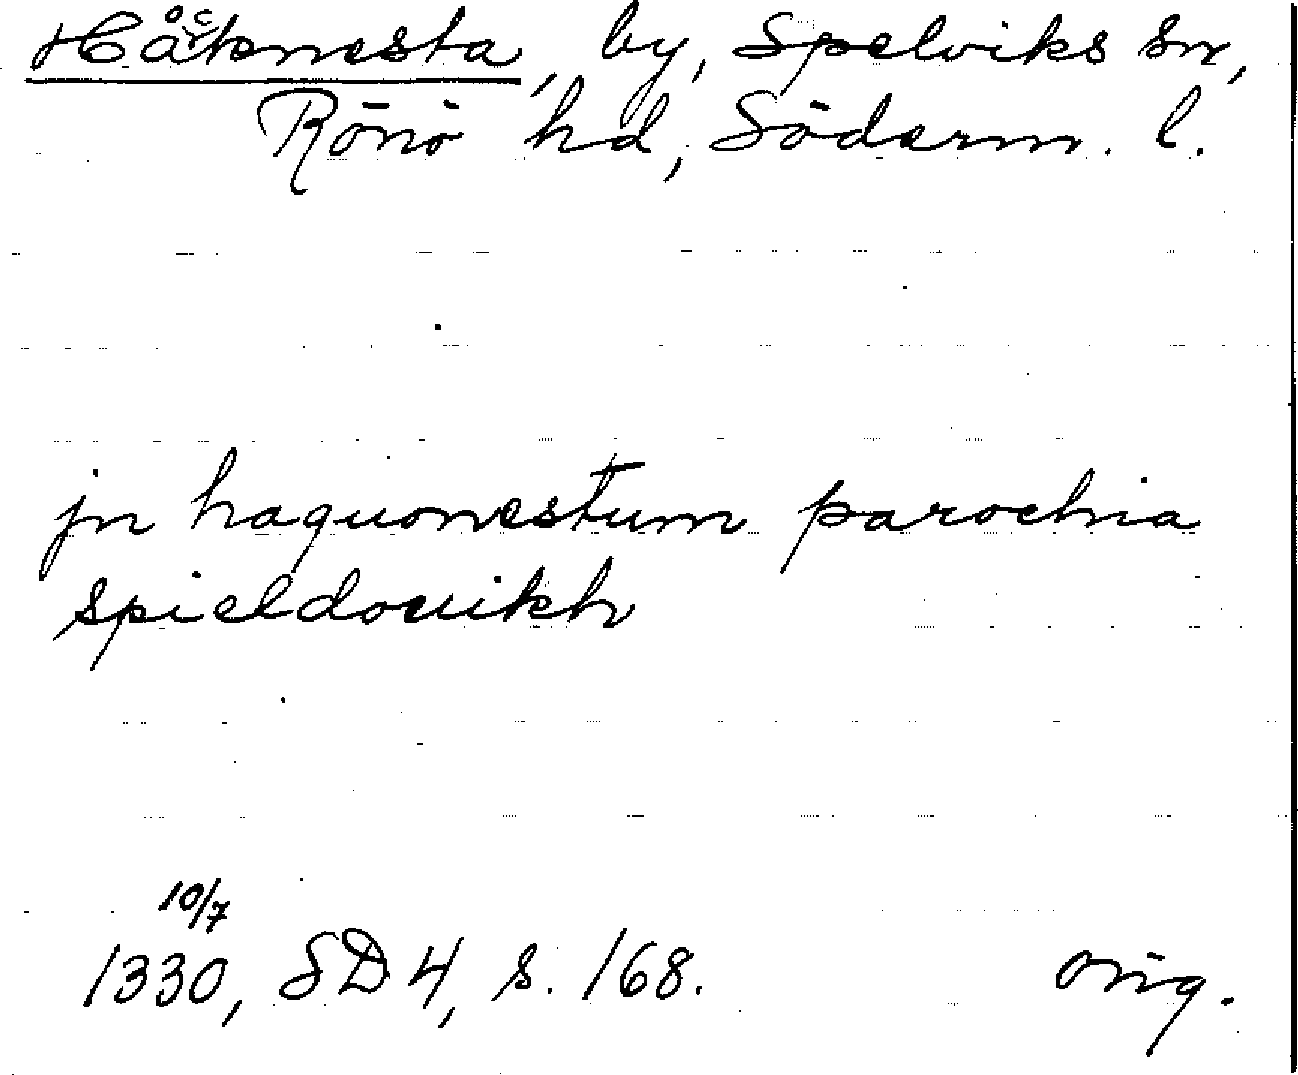 Håcknesta, by, Spelviks sn,
Rönö hd, Söderm. l.
jn haquonestum parochia
spieldouikh
10/7
1330, SD 4, s. 168. orig.